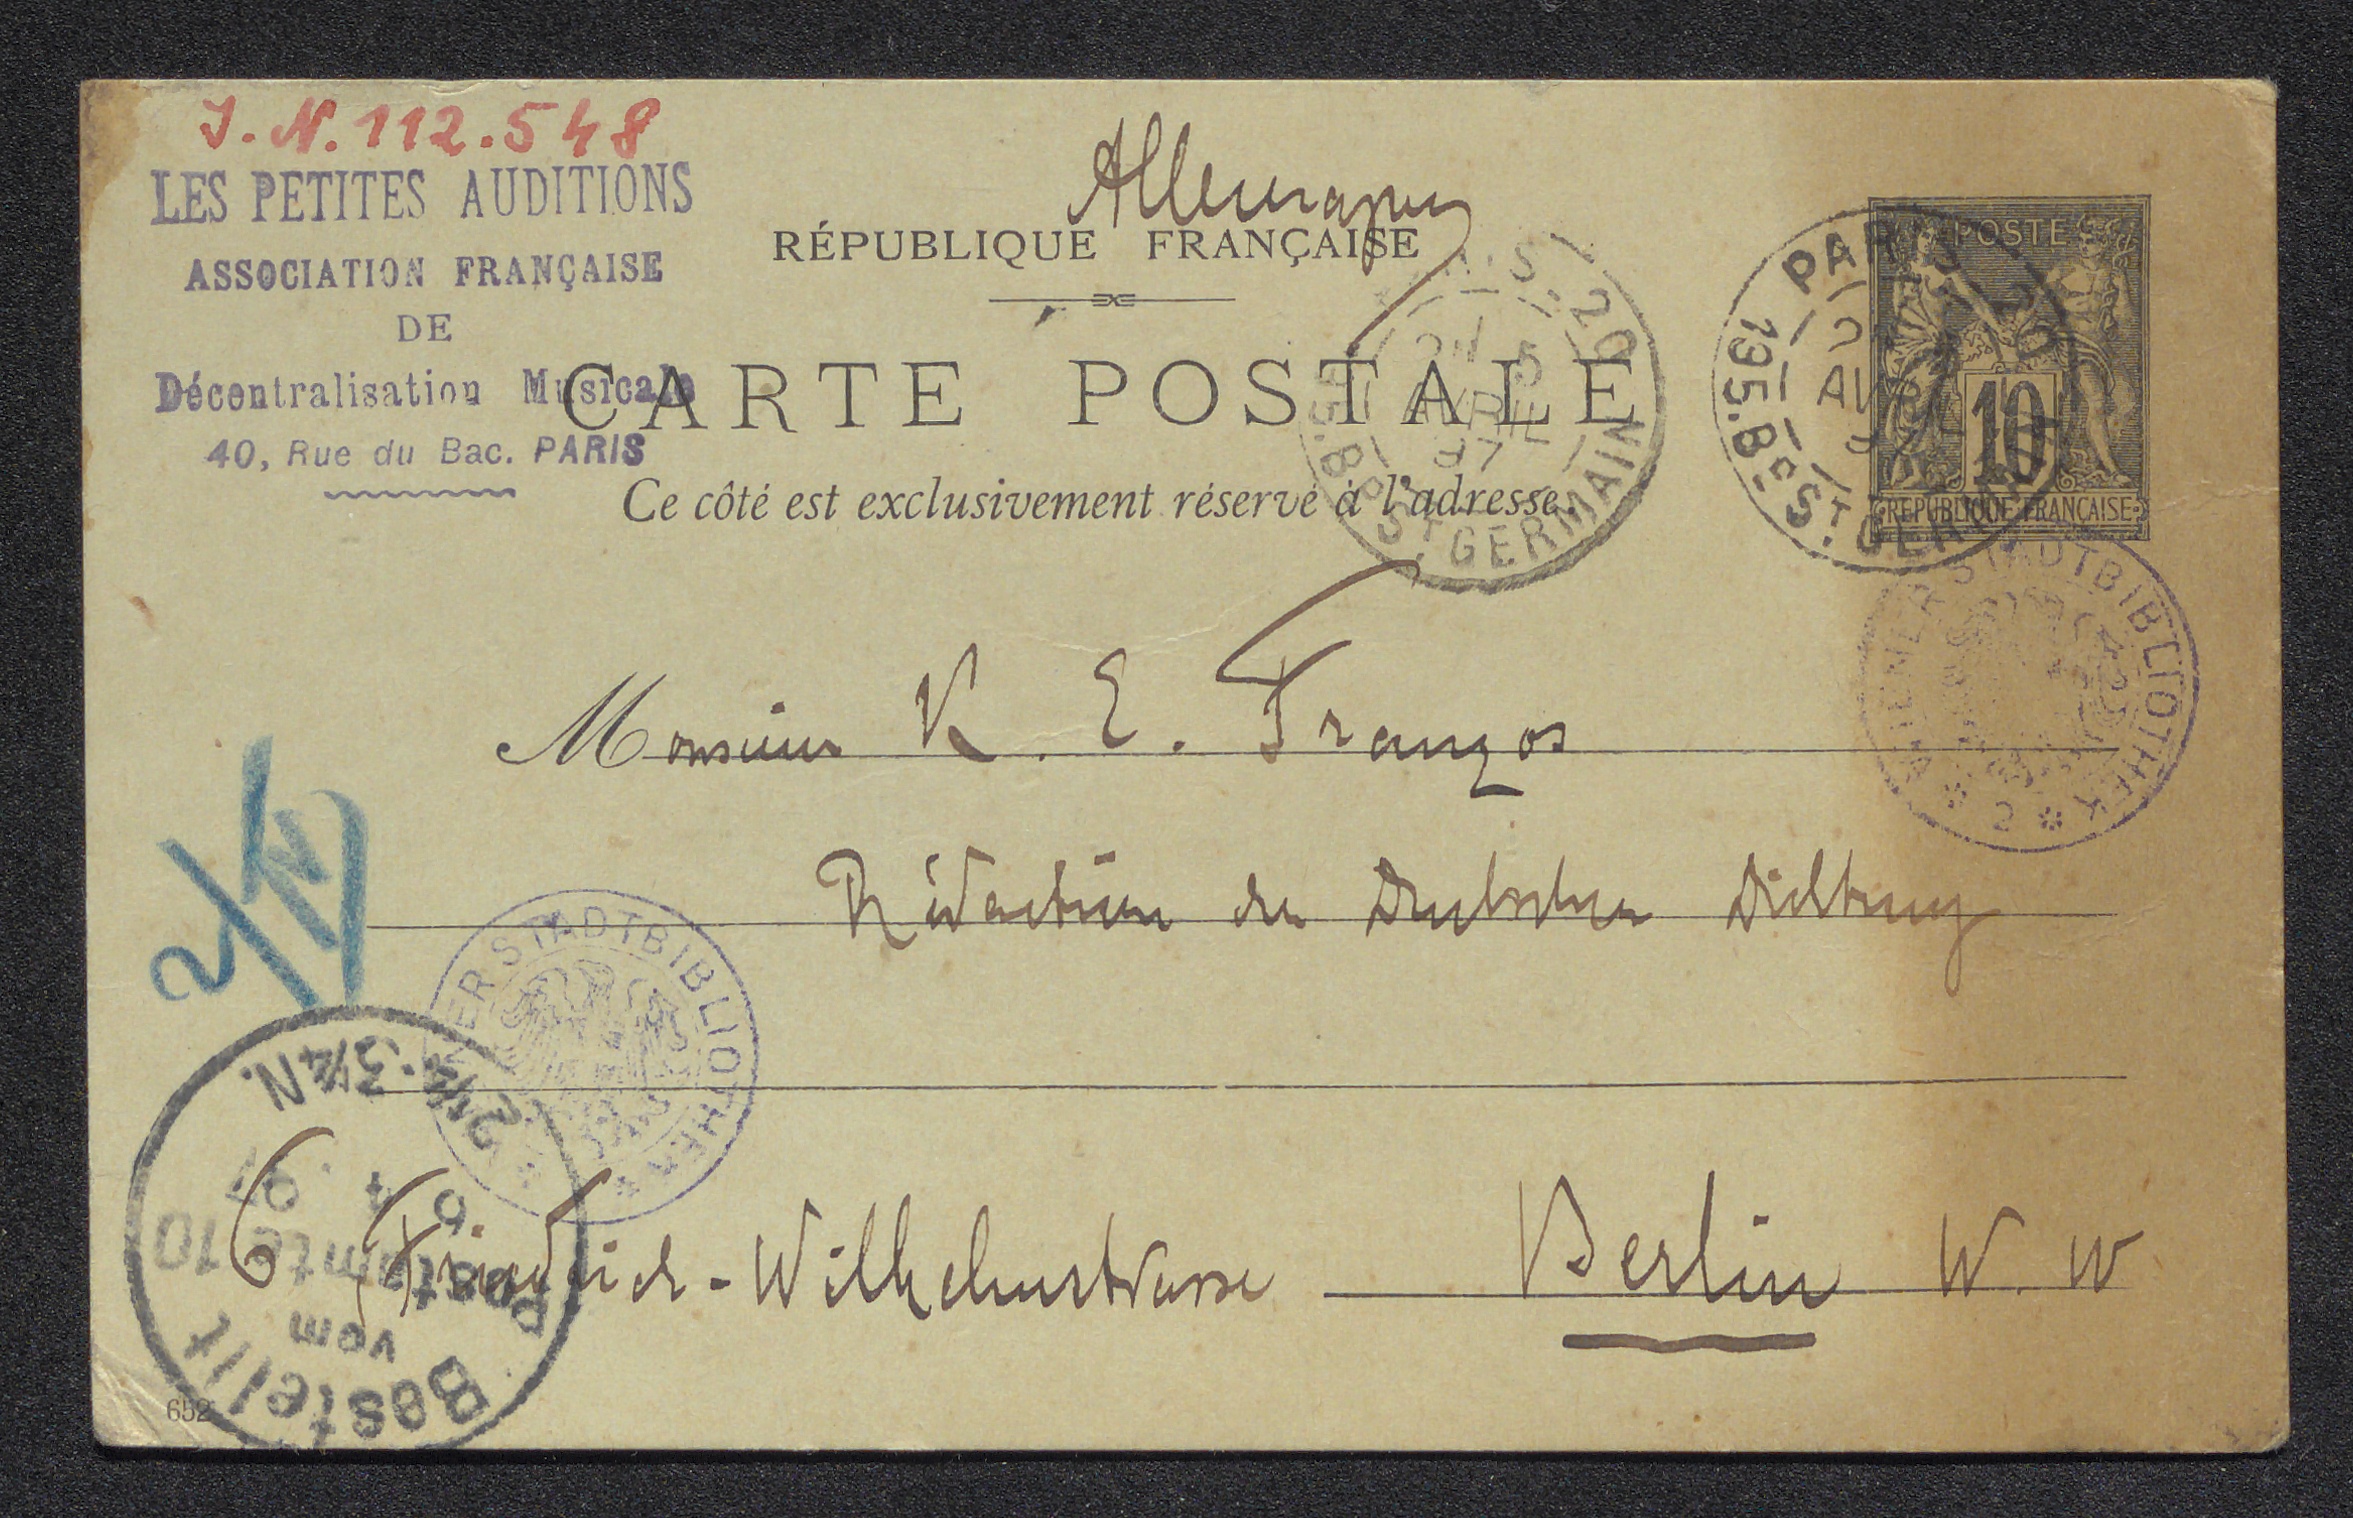 J. N. 112.548
LES PETITES AUDITIONS
ASSOCIATION FRANÇAISE
DE
Décentralisation Musicale
40, Rue du Bac. PARIS
Allemagne
RÉPUBLIQUE FRANÇAISE
CARTE POSTALE
Ce côté est exclusivement réservé à l'adresse.
POSTE
10
REPUBLIQUE FRANÇAISE
PARIS
195. Bd ST. GERMAIN
AVRIL
97
WIENER STADTBIBLIOTHEK
Monsieur K. E. Franzos
Rédaction der Deutschen Dichtung
6 Friedrich-Wilhelmstrasse Berlin W. W
WIENER STADTBIBLIOTHEK
Bestellt
vom
Postamte 10
6 4. 97
2¼-3¼N.
652